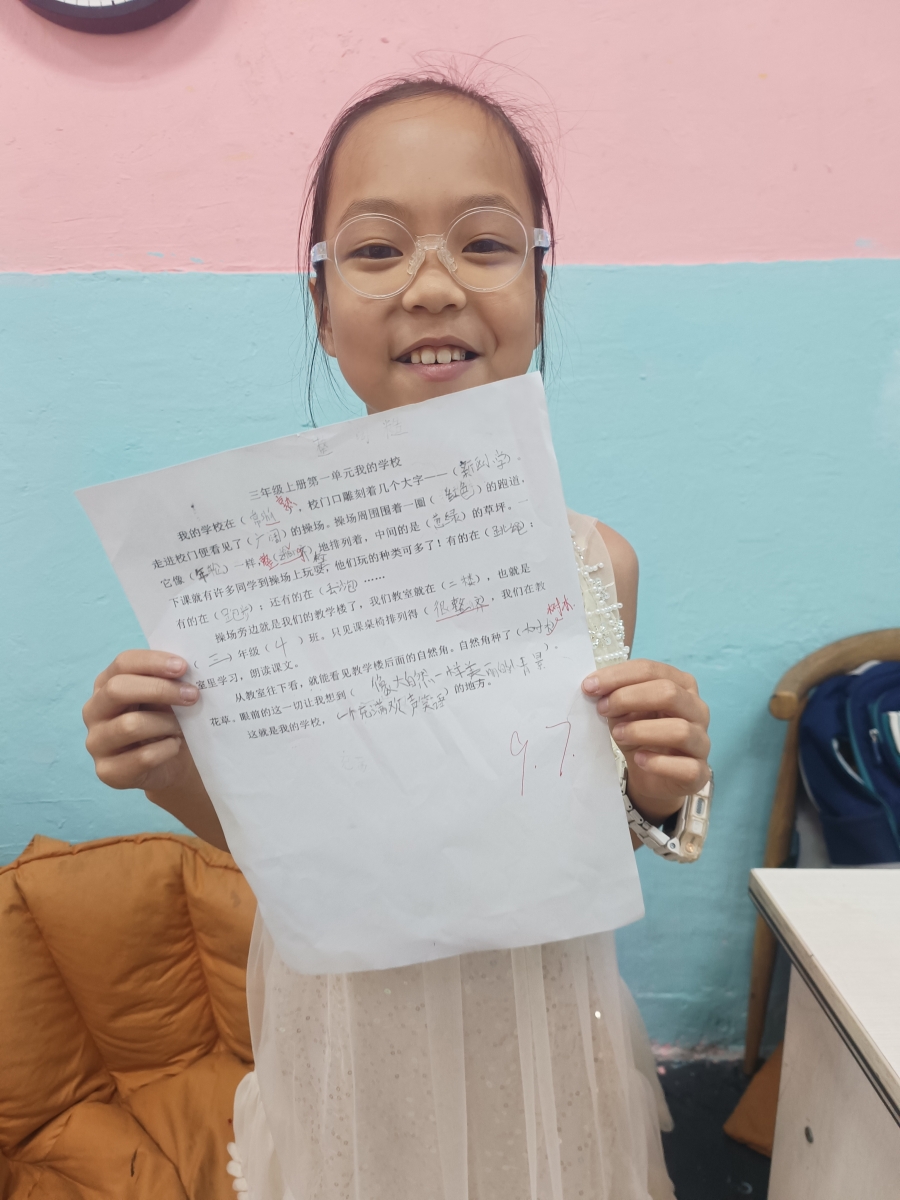 三年级上册第一单元我的学校
我的学校在（），校门口雕刻着几个大字——（新剑小学）。
走进校门便看见了（广阔）的操场。操场周围围着一圈（红色）的跑道，
它像（）一样，地排列着，中间的是（）的草坪。
下课就有许多同学到操场上玩耍，他们玩的种类可多了！有的在（跳绳）；
有的在（跑步）；还有的在（丢沙包）……
操场旁边就是我们的教学楼了，我们教室就在（二楼），也就是
（三）年级（4）班。只见课桌椅排列得（很整齐），我们在教
室里学习，朗读课文。
从教室往下看，就能看见教学楼后面的自然角。自然角种了（树木）
花草。眼前的这一切让我想到（像大自然一样美丽的背景）。
这就是我的学校，一个充满欢声笑语）的地方。
97.